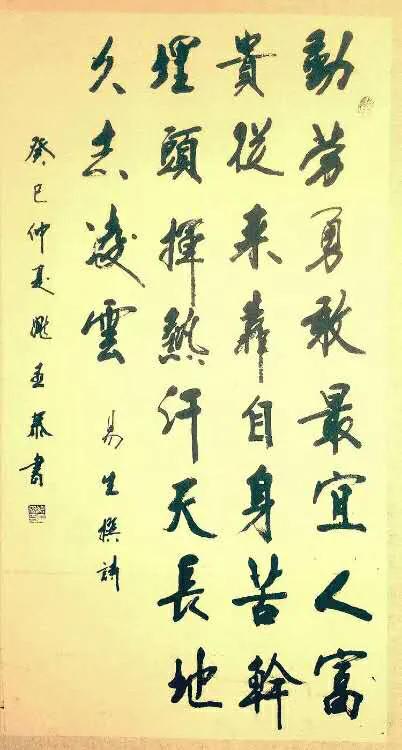 勤劳勇敢最宜人富
貴從来靠自身苦幹
埋頭揮熱汗天長地
久志凌雲
易生撰詩
癸巳仲夏恭書